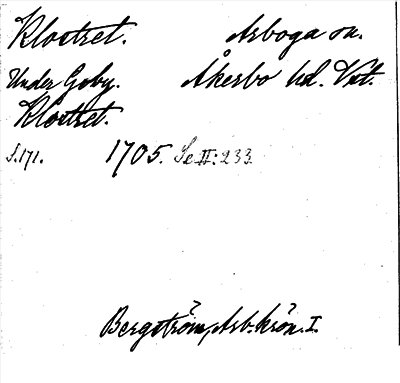 Klostret. Arboga sn.
Under Goby. Åkerbo hd. Vstl.
Klostret.
S. 171. 1705. Se II: 233.
Bergström, Arb. krön. I.